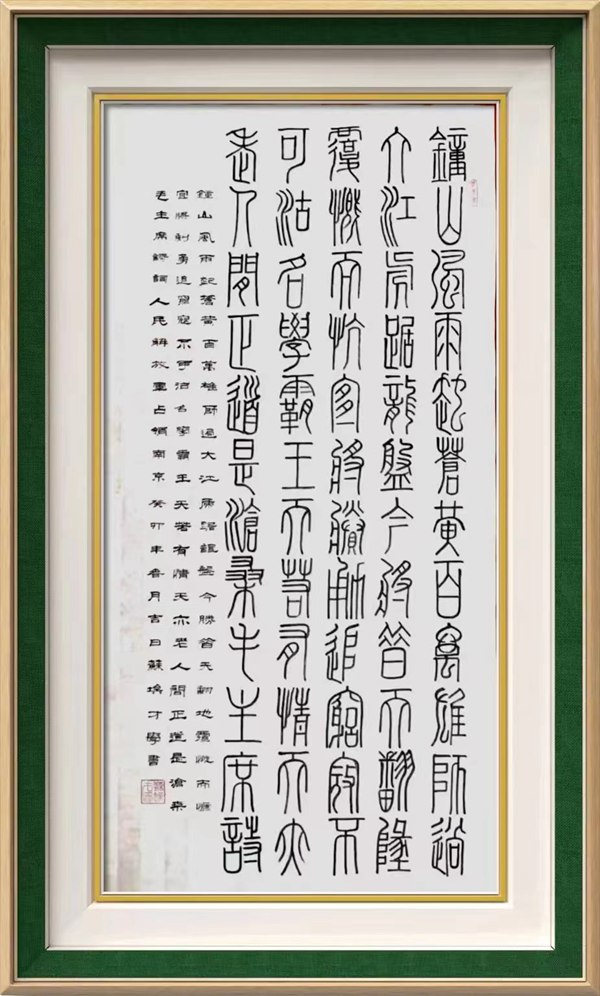 鐘山風雨起蒼黃百萬雄師過
大江虎踞龍盤今勝昔天翻地
覆慨而慷宜將剩勇追窮寇不
可沽名學霸王天若有情天亦
老人間正道是滄桑毛主席詩
鍾山風雨起蒼黃百萬雄師過大江虎踞龍盤今勝昔天翻地覆慨而慷
宜將剩勇追窮寇不可沽名學霸王天若有情天亦老人間正道是滄桑
毛主席詩詞人民解放軍占領南京癸卯年香月吉日蘇才學書